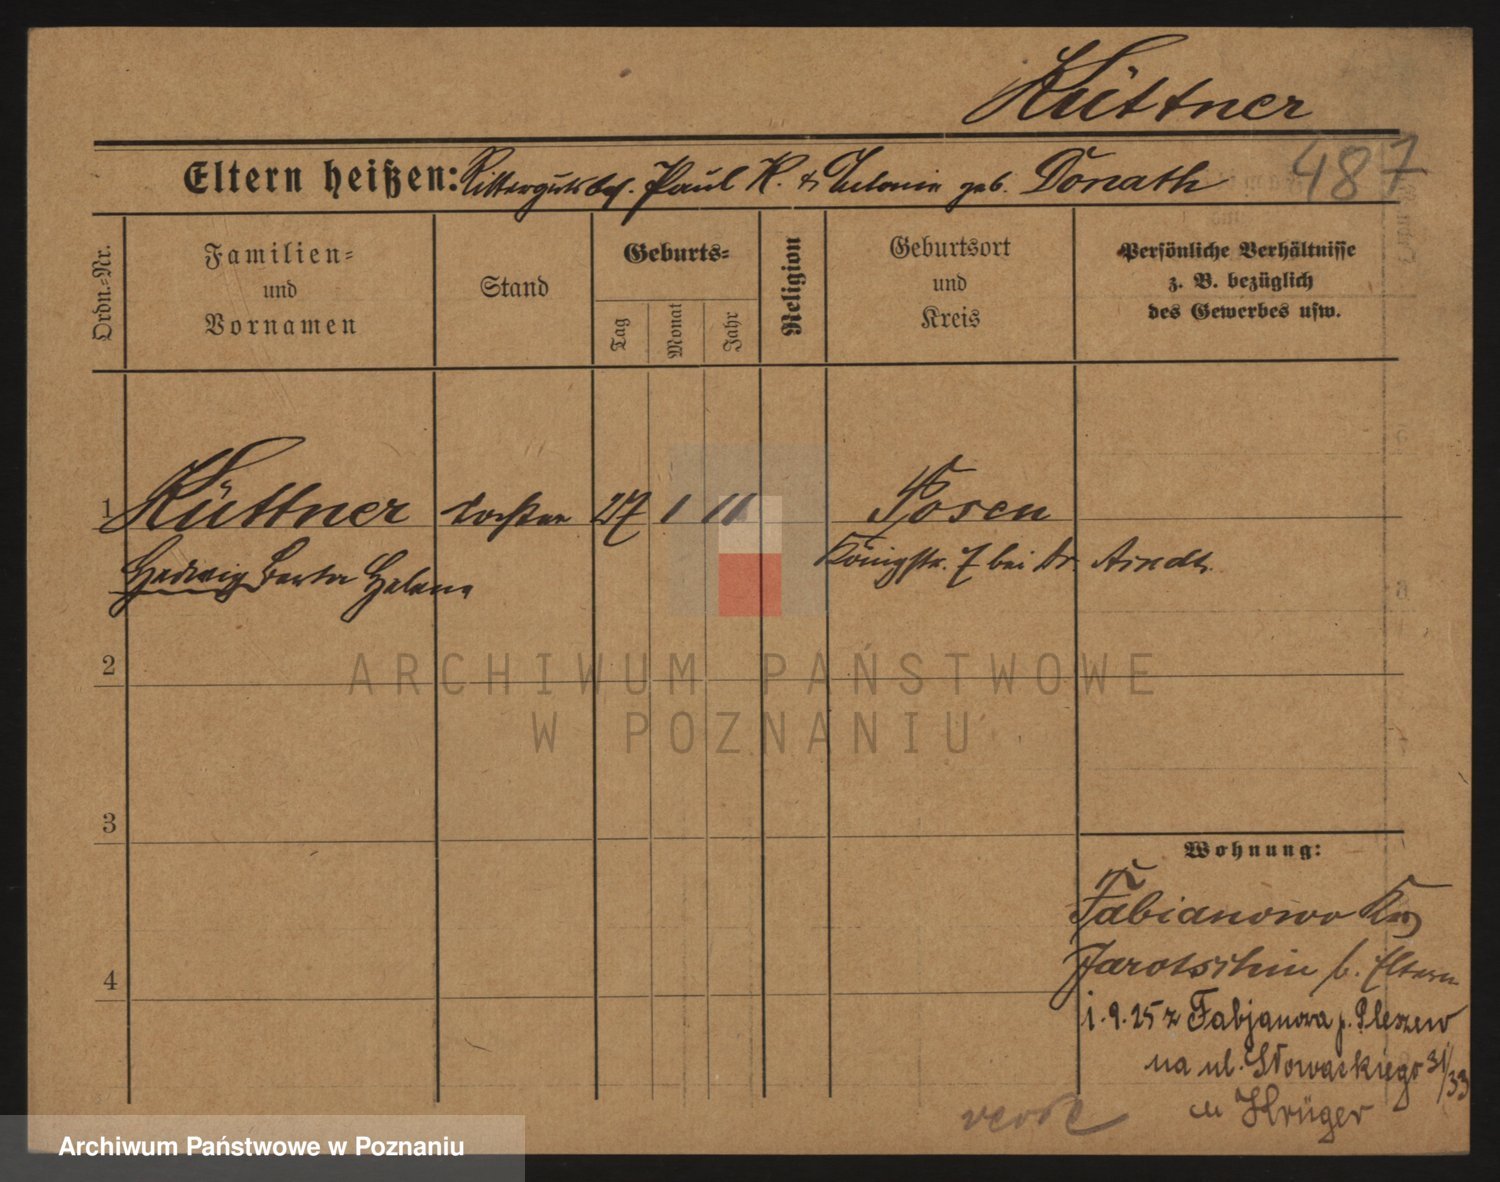 Küttner
Eltern heißen: Rittergutsbes. Paul K. & Melanie geb. Donath
487
Ordn.-Nr.
Familien-
und
Vornamen
Stand
Geburts-
Tag
Monat
Jahr
Religion
Geburtsort
und
Kreis
Persönliche Verhältnisse
z. B. bezüglich
des Gewerbes usw.
1 Küttner Tochter 27 1 11 Posen
Hedwig Berta Helene Königstr. 7 bei Dr. Arndt.
2
3
4
Wohnung:
Fabianowo Krs
Jarotschin b. Eltern
1.9.25 z Fabjanowa p. Pleszew
na ul. Słowackiego 31/33
u Krüger
verte
ARCHIWUM PAŃSTWOWE
W POZNANIU
Archiwum Państwowe w Poznaniu